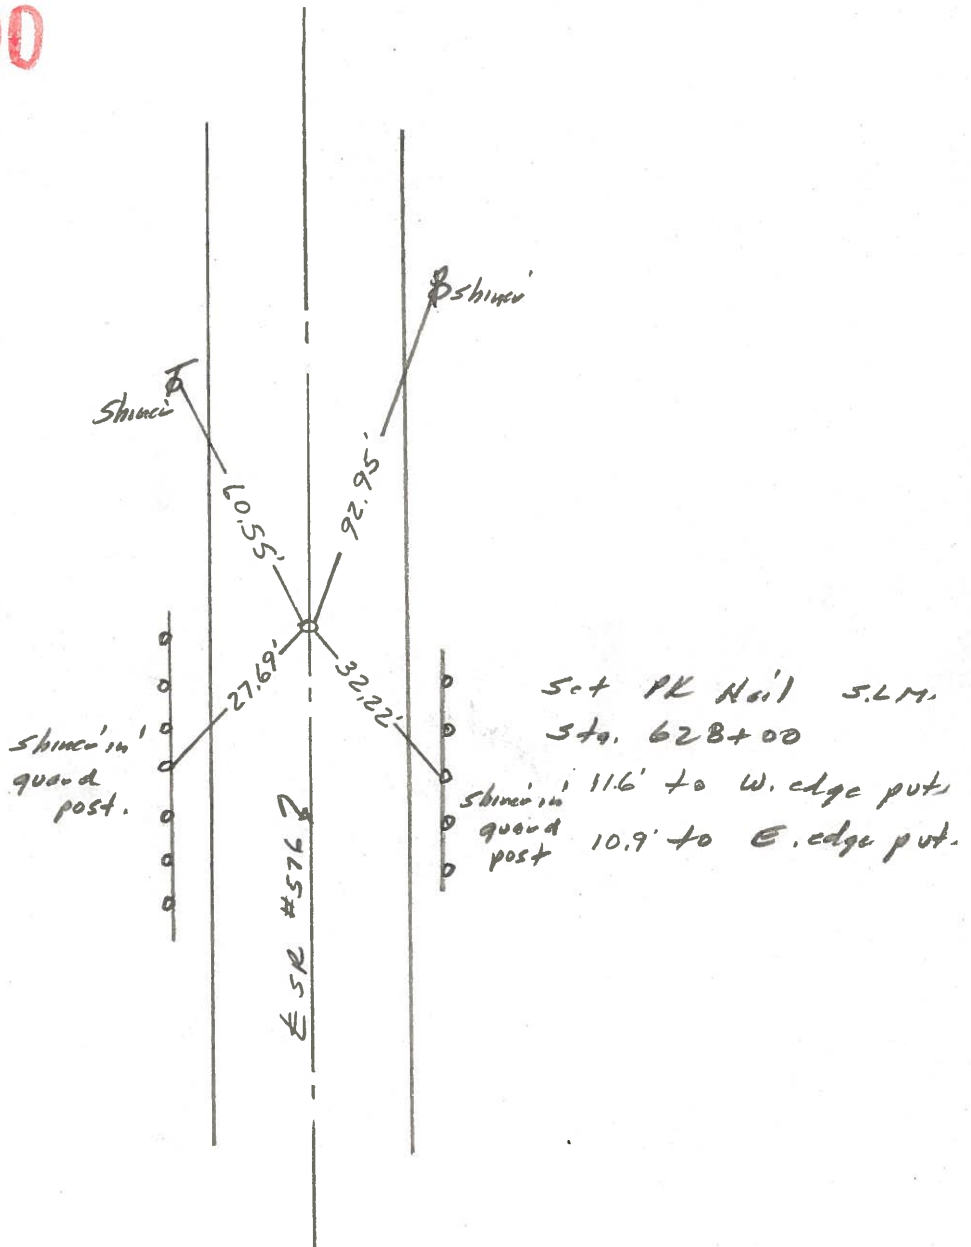 0
'shiner'
'shiner'
60.55'
92.95'
27.69'
32.22'
'shiner' in
guard
post.
'shiner' in
guard
post
Set PK Nail S.L.M.
Sta. 628+00
11.6' to W. edge pvt.
10.9' to E. edge pvt.
℄ SR #576